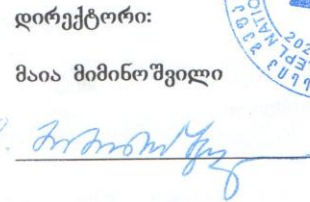 დირექტორი:
მაია მიმინოშვილი